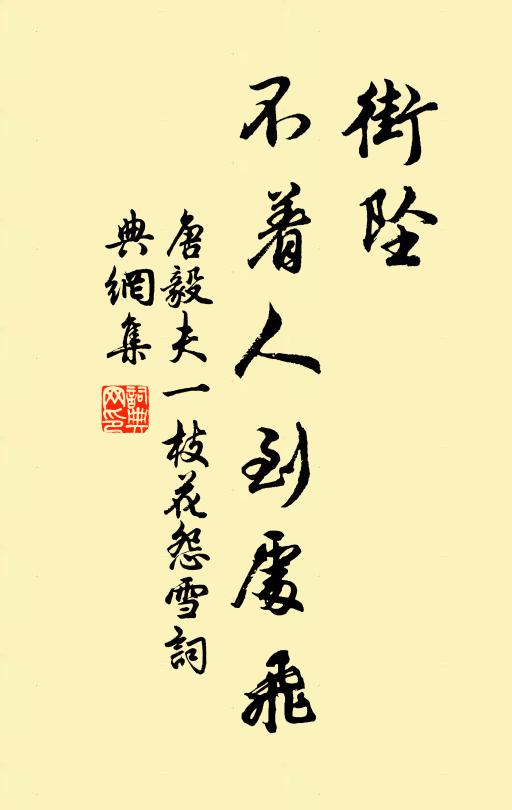 不着人到處飛
街墜
唐毅夫一枝花怨雪詞
典網集
詞典網印